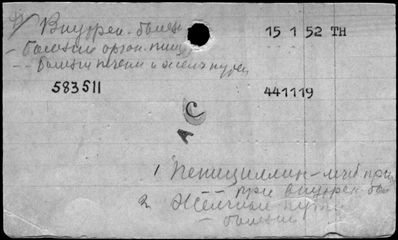 Внутрен. болезн 15 1 52 ТН
- болезни орган. пищ
-- болезни печени и желч путей
583511 441119
А С
1 Пеницилин - леч. при
при внутрен. бол
2 Жёлчные пути
болезни